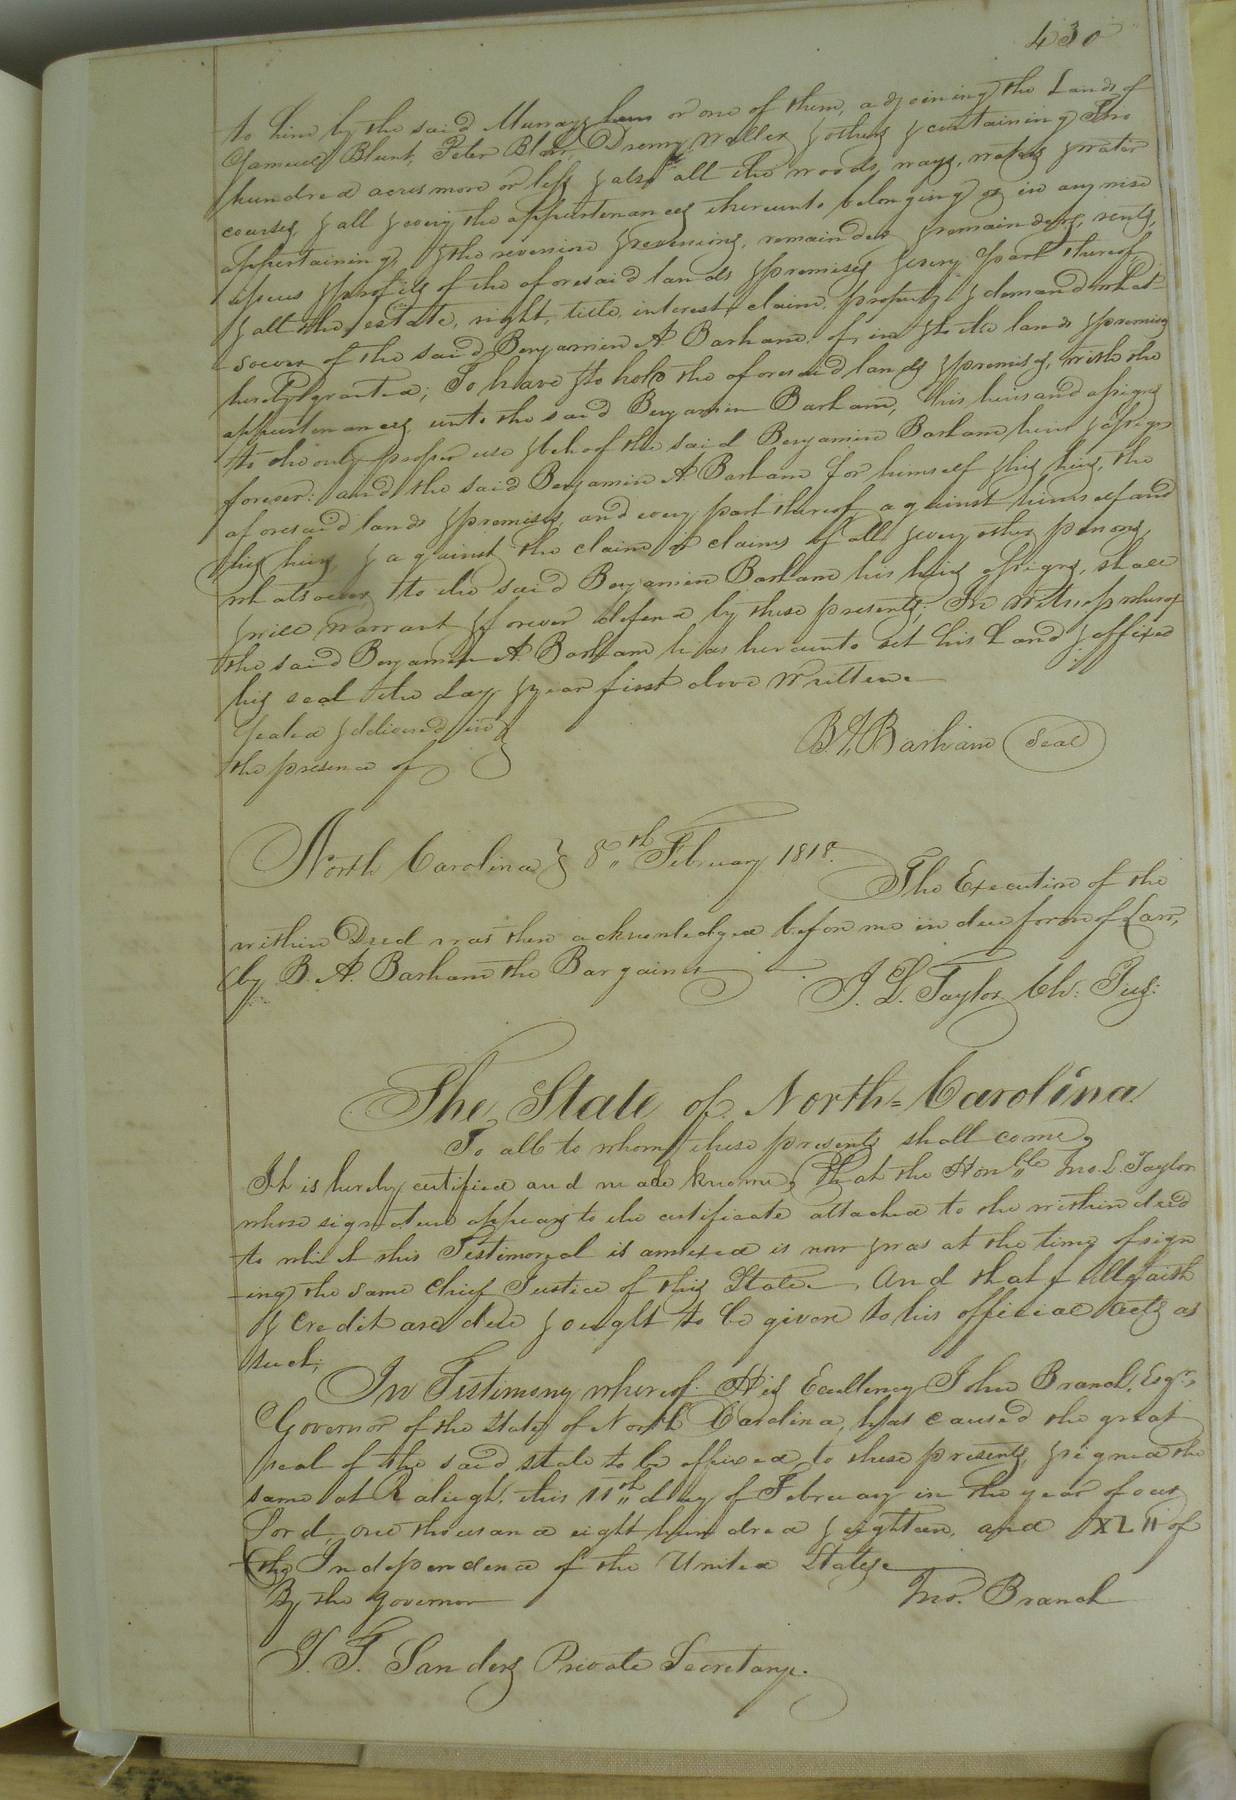 430
to him by the said Murray heirs or one of them, adjoining the Lands of
Samuel Blunt, Peter Blow, Drewry Waller & others & containing Two
hundred acres more or less & also all the woods, ways, waters & water
courses, & all & every the appurtenances thereunto belonging or in any wise
appertaining, & the reversion & reversions, remainder & remainders, rents,
issues & profits of the aforesaid lands & premises & every part thereof,
& all the estate, right, title, interest, claim, property & demand what-
soever of the said Benjamin A Barham, of, in & to the lands & premises
hereby granted; To have & to hold the aforesaid lands & premises, with the
appurtenances, unto the said Benjamin Barham, his heirs and assigns
to the only proper use & behoof of the said Benjamin Barham heirs & assigns
forever: and the said Benjamin A Barham for himself & his heirs, the
aforesaid lands & premises, and every part thereof, against himself and
his heirs, & against the claim or claims of all & every other persons,
whatsoever, to the said Benjamin Barham his heirs assigns, shall
& will warrant & forever defend by these presents; In Witness whereof
the said Benjamin A. Barham has hereunto set his hand & affixed
his seal the day & year first above Written.
Sealed & delivered in }
B. A. Barham (Seal)
the presence of
North Carolina } 8th February 1818.
The Execution of the
within Deed was then acknowledged before me in due form of Law,
by B. A. Barham the Bargainor
J. L. Taylor Ch: Jus:
The State of North=Carolina
To all to whom these presents shall come,
It is hereby certified and made known, that the Honble Jno. L. Taylor
whose signature appears to the certificate attached to the within deed
to which this Testimonial is annexed is now & was at the time of sign
-ing the same Chief Justice of this State. And that full faith
& Credit are due & ought to be given to his official acts as
such;
In Testimony whereof His Excellency John Branch, Esqr.,
Governor of the State of North Carolina, has caused the great
seal of the said state to be affixed to these presents, & signed the
same at Raleigh, this 11th day of February in the year of our
Lord, one thousand eight hundred & eighteen, and XLII of
the Independence of the United States.
By the Governor
Jno. Branch
Sanders Private Secretary.